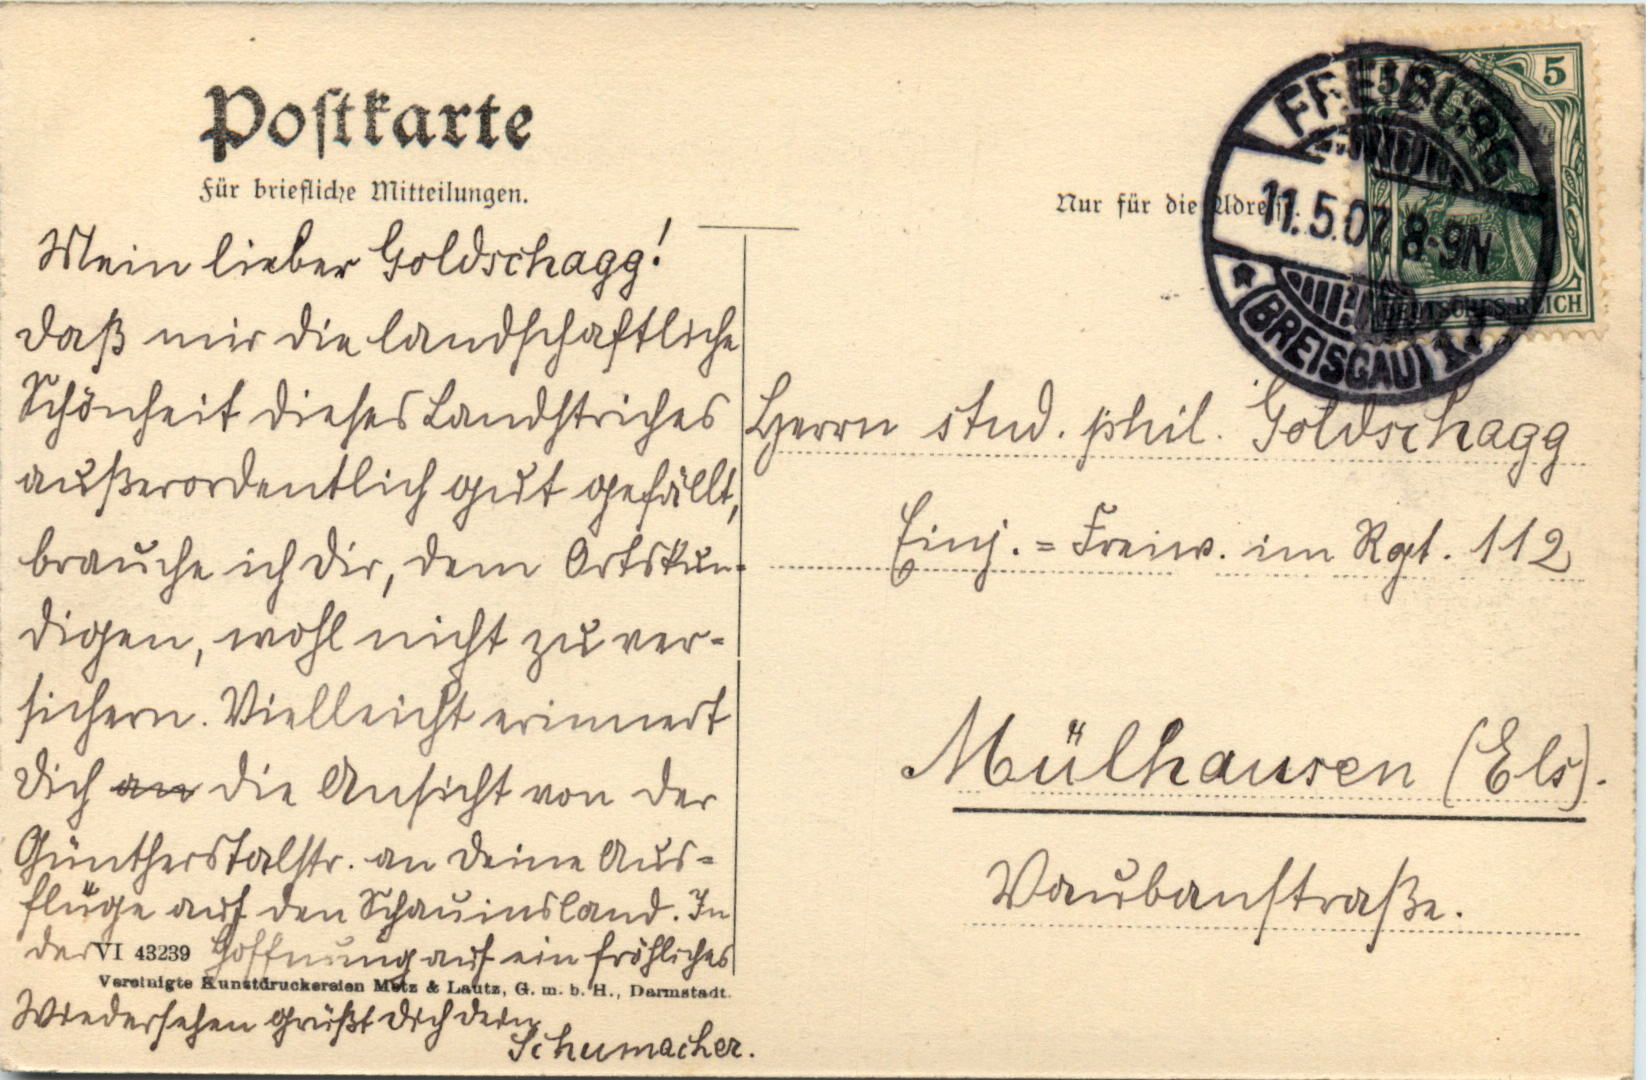 Postkarte
Für briefliche Mitteilungen.
Mein lieber Goldschagg!
Daß mir die landschaftliche
Schönheit dieses Landstriches
außerordentlich gut gefällt,
brauche ich Dir, dem Ortskun-
digen, wohl nicht zu ver-
sichern. Vielleicht erinnert
Dich an die Ansicht von der
Güntherstalstr. an Deine Aus-
flüge auf den Schauinsland. In
der Hoffnung auf ein fröhliches
Wiedersehen grüßt Dich Dein
Schumacher.
VI 43239
Vereinigte Kunstdruckereien Metz & Lautz, G. m. b. H., Darmstadt.
Nur für die Adresse.
5
DEUTSCHES REICH
FREIBURG
11.5.07. 8-9N
* (BREISGAU) 1
Herrn stud. phil. Goldschagg
Einj.=Freiw. im Rgt. 112
Mülhausen (Els).
Vaubanstraße.